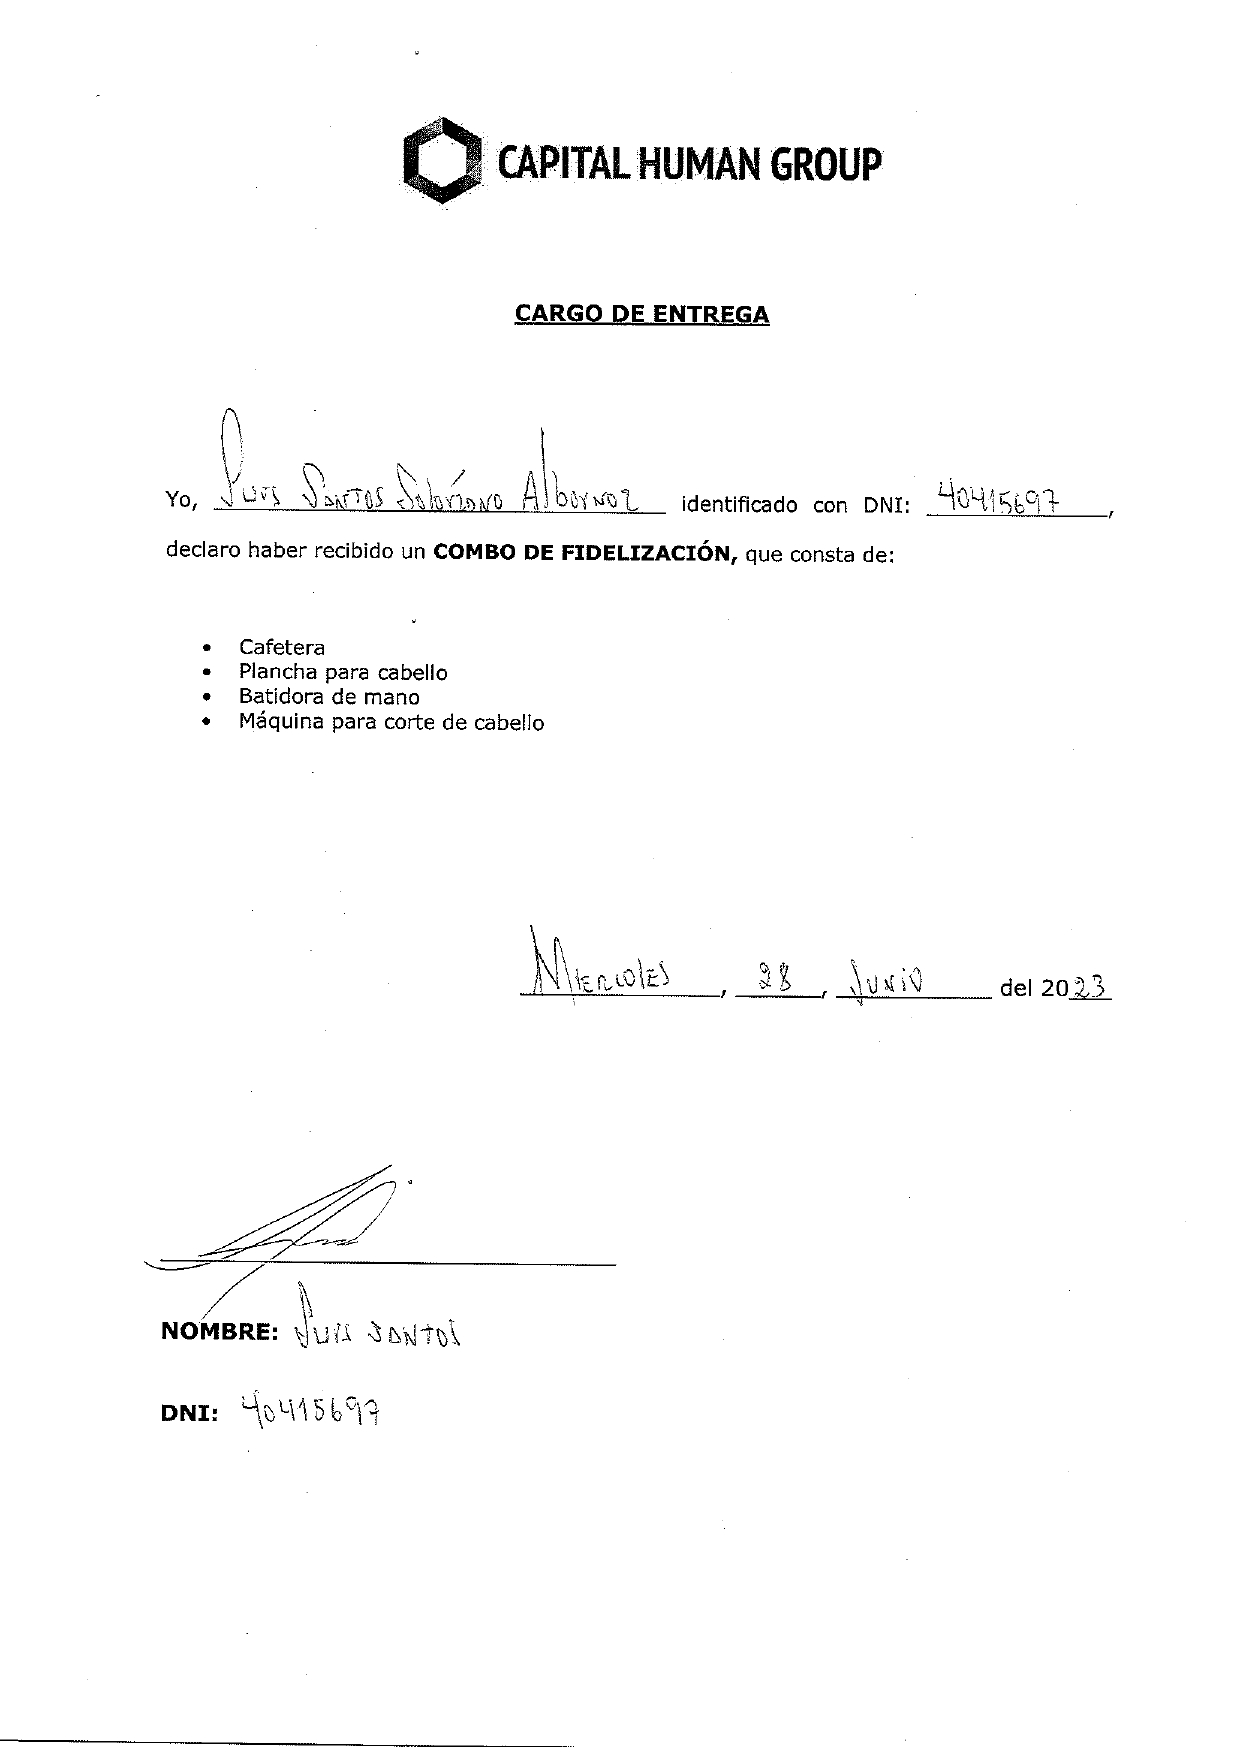 CAPITAL HUMAN GROUP
CARGO DE ENTREGA
Yo, Luis Santos Solorzano Albornoz identificado con DNI: 40415697,
declaro haber recibido un COMBO DE FIDELIZACIÓN, que consta de:
• Cafetera
• Plancha para cabello
• Batidora de mano
• Máquina para corte de cabello
Miercoles, 28, Junio del 2023
NOMBRE: Luis Santos
DNI: 40415697